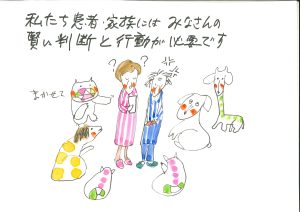 私たち患者・家族には みなさんの
賢い判断と行動が必要です
まかせて
? ?